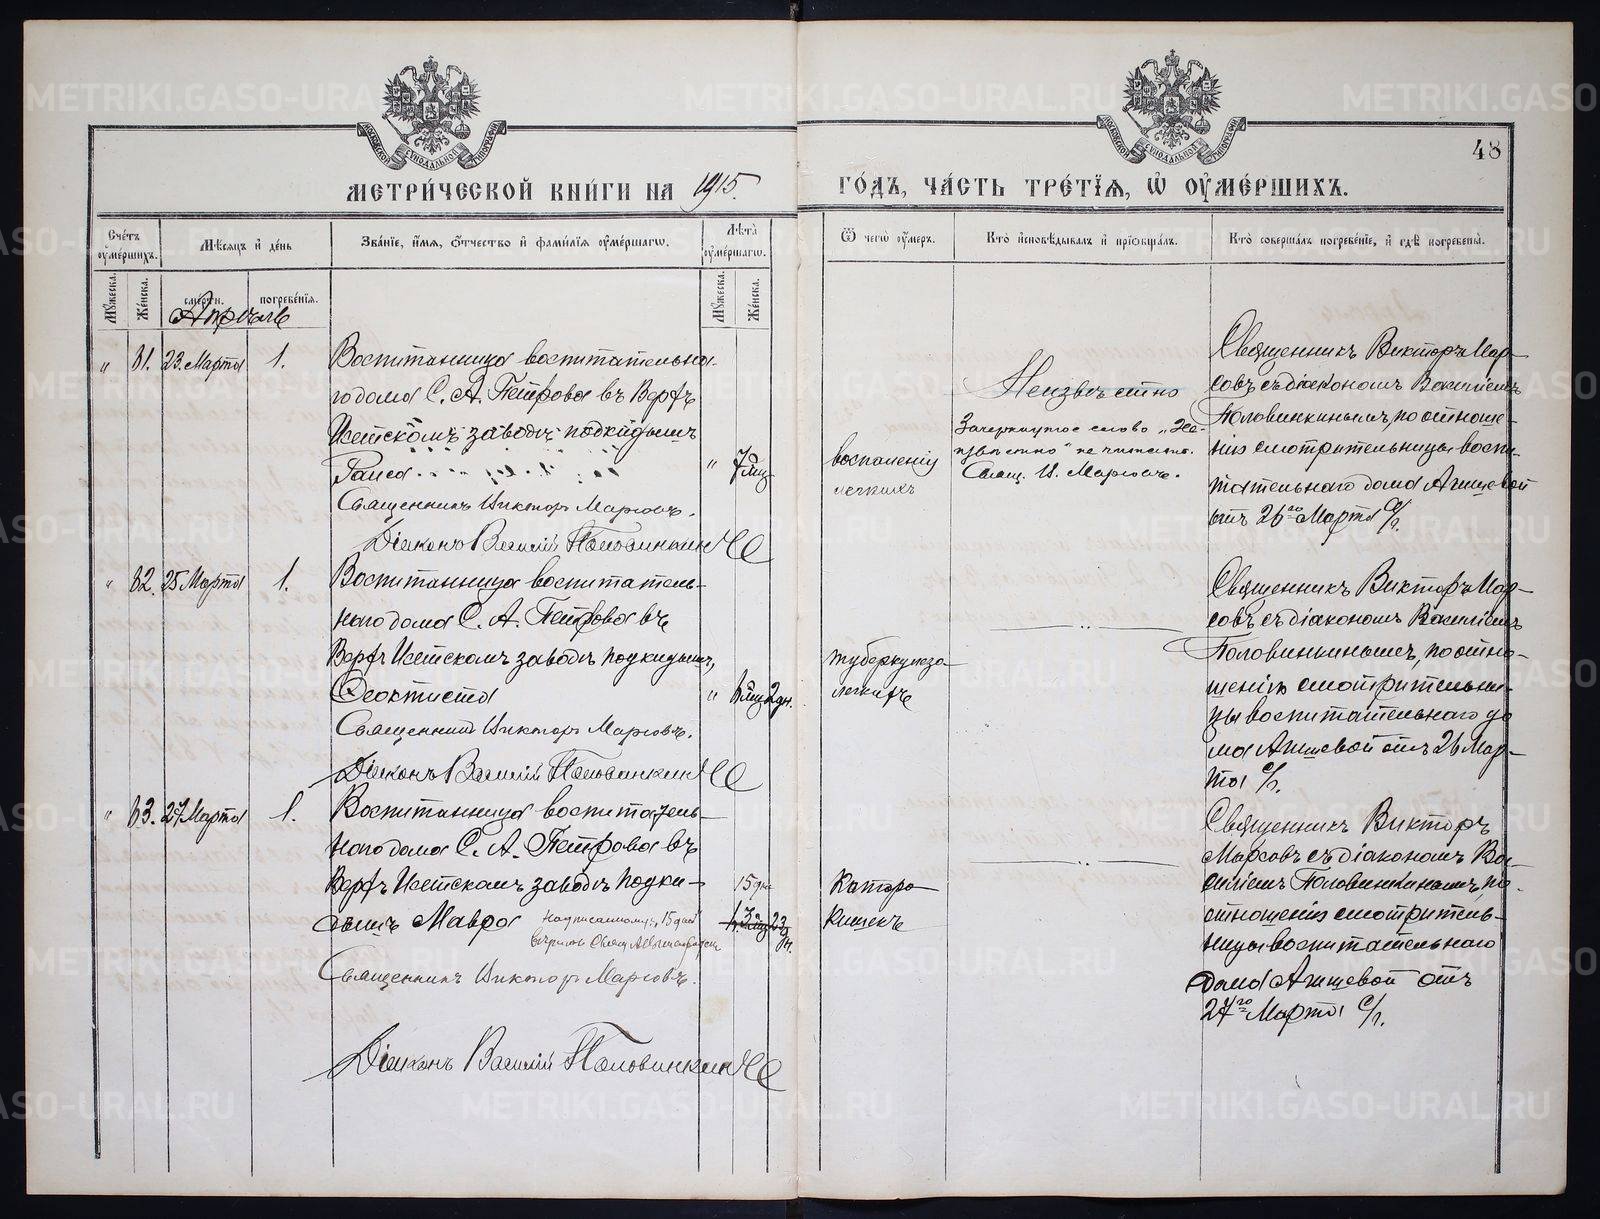 48
МЕТРИ́ЧЕСКОЙ КНИ́ГИ НА 1915.
ГО́ДЪ, ЧА́СТЬ ТРЕ́ТЇѦ, Ѡ҆ ОУ҆МЕ́РШИХЪ.
Сче́тъ оу҆ме́ршихъ.
Мѣ́сѧцъ и҆ де́нь
Зва́нїе, и҆́мѧ, ѻ҆́тчество и҆ фами́лїѧ оу҆ме́ршагѡ.
Лѣ́та оу҆ме́ршагѡ.
Ѿ чегѡ̀ оу҆́меръ.
Кто̀ и҆сповѣ́дывалъ и҆ прїѡбща́лъ.
Кто̀ соверша́лъ погребе́нїе, и҆ гдѣ̀ погребены̀.
Мꙋ́жеска.
Же́нска.
сме́рти.
погребе́нїѧ.
Мꙋ́жеска.
Же́нска.
Апрѣль
" 61. 23. Марта 1.
Воспитанница воспитательна-
го дома С. А. Петрова въ Верхъ
Исетскомъ заводѣ подкидышъ
Раиса
" 7 мѣс.
Священникъ Викторъ Марсовъ.
Діаконъ Василій Половинкинъ
воспаленія
легкихъ
Неизвѣстно
Зачеркнутое слово „Не-
извѣстно" не читать.
Свящ. В. Марсовъ.
Священникъ Викторъ Мар-
совъ съ діакономъ Василіемъ
Половинкинымъ, по отноше-
нію смотрительницы воспи-
тательнаго дома Агишевой
отъ 26го Марта с/г.
" 62. 25 Марта 1.
Воспитанница воспитатель-
наго дома С. А. Петрова въ
Верхъ Исетскомъ заводѣ подкидышъ,
Феоктиста
" 6 мѣс 2 дн.
Священникъ Викторъ Марсовъ.
Діаконъ Василій Половинкинъ
туберкулеза
легкихъ
— „ —
Священникъ Викторъ Мар-
совъ съ діакономъ Василіемъ
Половинкинымъ, по отно-
шенію смотрительни-
цы воспитательнаго до
ма Агишевой отъ 26 Мар-
та с/г.
" 63. 27 Марта 1.
Воспитанница воспитатель-
наго дома С. А. Петрова въ
Верхъ Исетскомъ заводѣ подки-
дышъ Мавра
надписанному: „15 дней"
вѣрить Свящ.
15 дн
Священникъ Викторъ Марсовъ.
Діаконъ Василій Половинкинъ
Катара
Кишекъ
— „ —
Священникъ Викторъ
Марсовъ съ діакономъ Ва-
силіемъ Половинкинымъ, по
отношенію смотритель-
ницы воспитательнаго
дома Агишевой отъ
27го Марта с/г.
METRIKI.GASO-URAL.RU